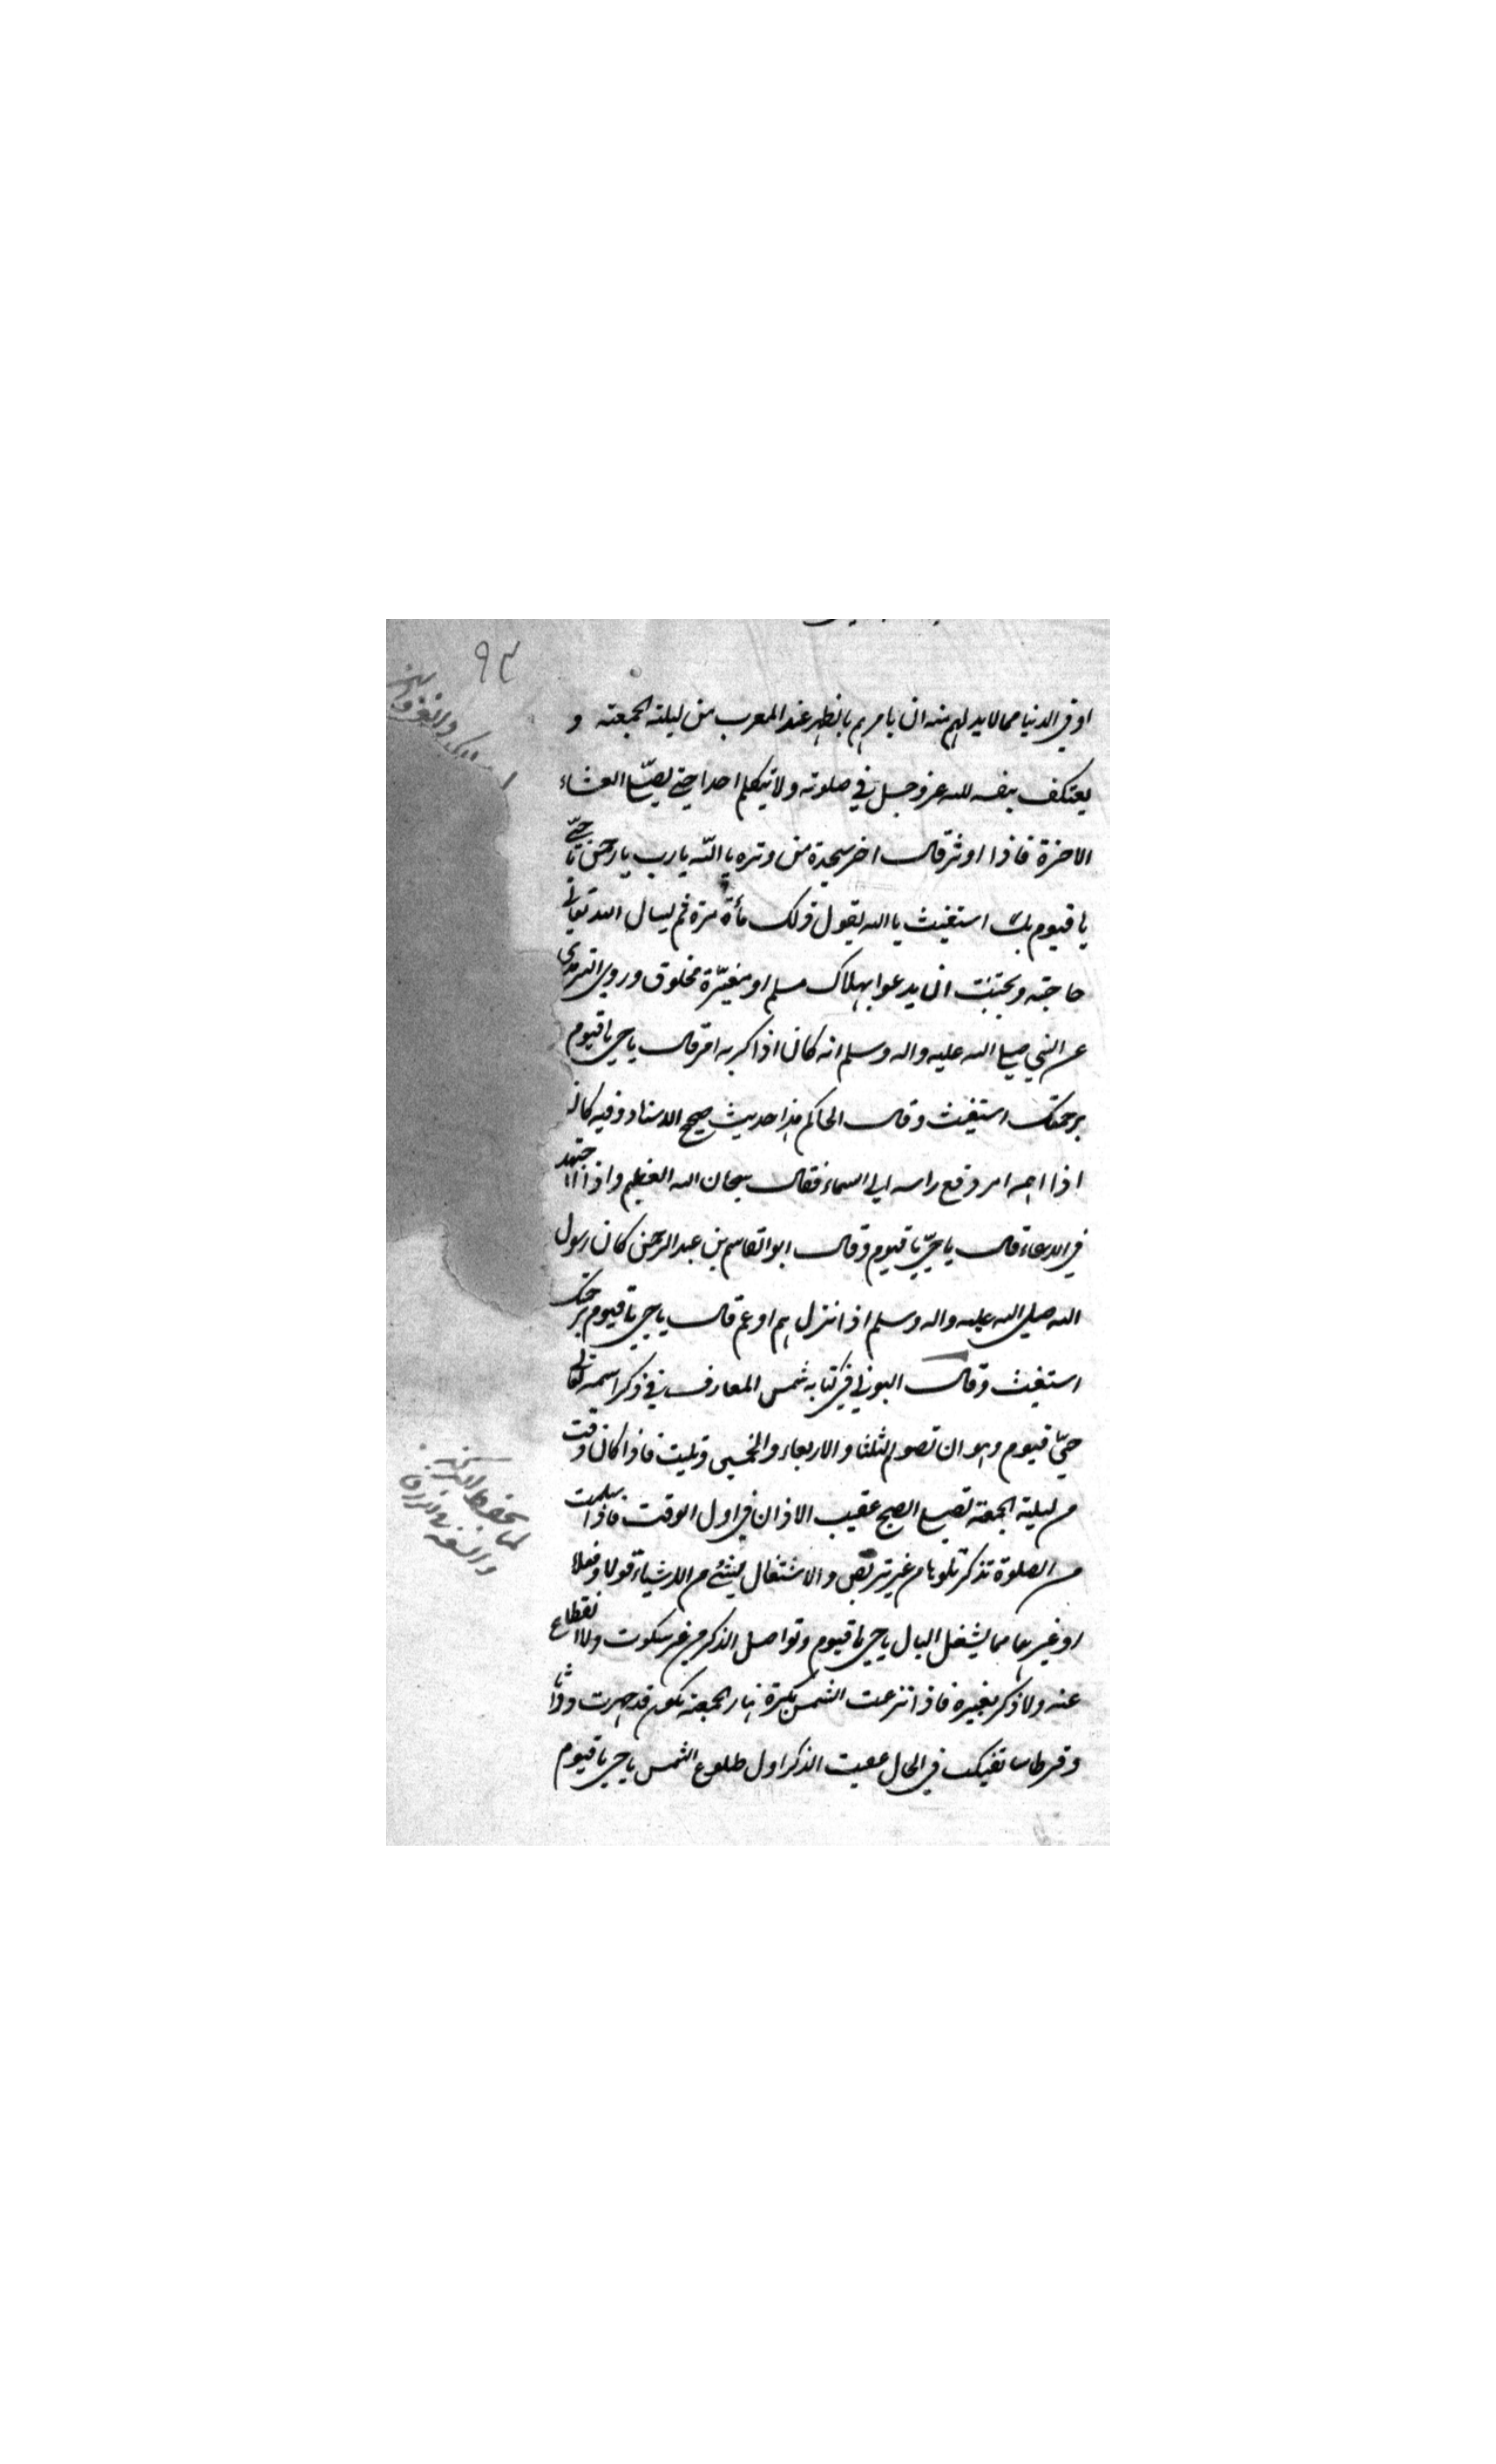 ٩٣
او في الدنيا مما لا بد لهم منه ان يامرهم بالطهر عند المغرب من ليلة الجمعة و
يعتكف بنفسه لله عز وجل في صلوته ولا يتكلم احدا حتى يصلي العشاء
الاخرة فاذا اوتر قال اخر سجدة من وتره يا الله يا رب يا رحمن يا حي
يا قيوم بك استغيث يا الله يقول ذلك مأة مرة ثم يسال الله تعالى
حاجته ويجتنب ان يدعوا بهلاك مسلم او مخلوق وروى الترمذي
عن النبي صلى الله عليه واله وسلم انه كان اذا كربه امر قال يا حي يا قيوم
برحمتك استغيث وقال الحاكم هذا حديث صحيح الاسناد وفيه كان
اذا اهمه امر رفع راسه الى السماء فقال سبحان الله العظيم واذا اجتهد
في الدعاء قال يا حيّ يا قيوم وقال ابو القاسم بن عبد الرحمن كان رسول
الله صلى الله عليه واله وسلم اذا نزل هم او غم قال يا حي يا قيوم برحمتك
استغيث وقال البوني في كتابه شمس المعارف في ذكر اسمه تعالى
حيّ قيوم وهو ان تصوم الثلثا والاربعاء والخميس فاذا كان وقت
من ليلة الجمعة تصلي الصبح عقيب الاذان في اول الوقت فاذا سلمت
من الصلوة تذكر من غير تربص والاشتغال بشئ من الاشياء قولا وفعلا
او غيرهما مما يشغل البال يا حي يا قيوم وتواصل الذكر من غير سكوت ولا انقطاع
عنه ولا ذكر بغيره فاذا نزعت الشمس بكرة نهار الجمعة تكون قد احضرت دواتا
وقرطاسا تفيكتب في الحال عقيب الذكر اول طلوع الشمس يا حي يا قيوم